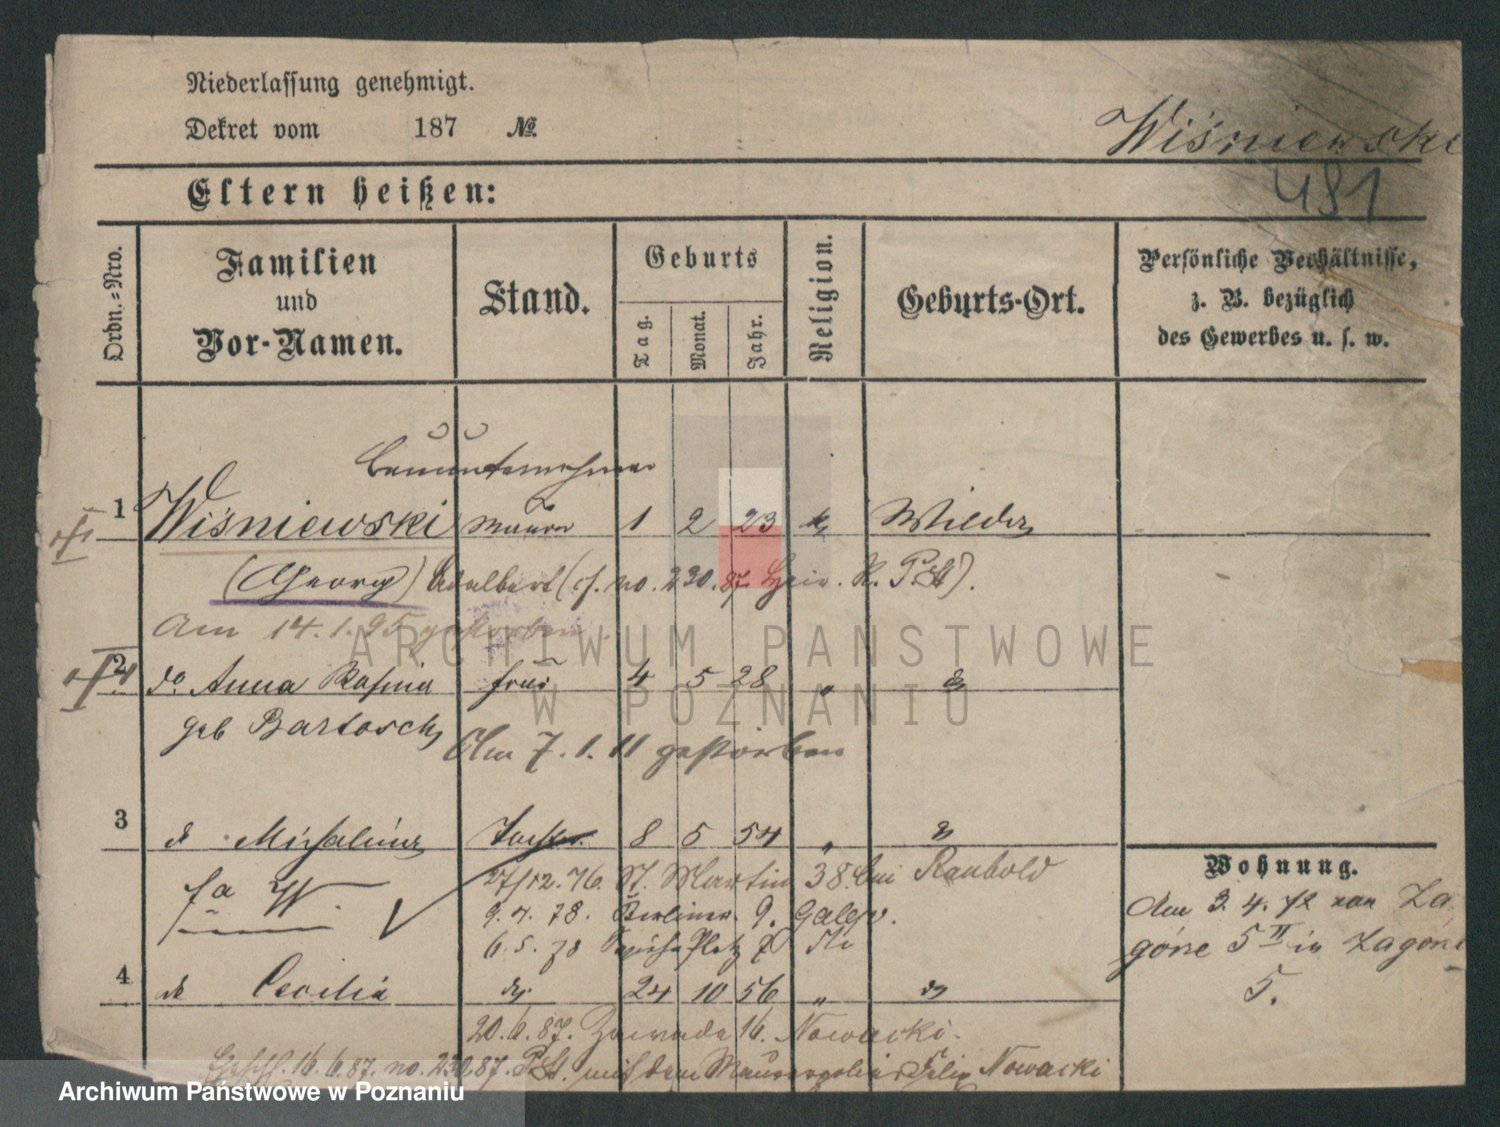 Niederlassung genehmigt.
Dekret vom 187 №
Wiśniewski
481
Eltern heißen:
Ordn.=Nro.
Familien
und
Vor-Namen.
Stand.
Geburts
Tag.
Monat.
Jahr.
Religion.
Geburts-Ort.
Persönliche Verhältnisse,
z. B. bezüglich
des Gewerbes u. s. w.
Bauunternehmer
1 Wiśniewski Maurer 1 2 23 k
(Georg) Adalbert (cf. no. 230.87 Heir. R. P. St).
Am 14.1.95 gestorben.
2 do Anna Rosina Frau 4 5 28 "
geb Bartosch
Am 7.1.11 gestorben
3 Michalina Tochter 8 5 54 "
27/12.76. St. Martin 38. bei Raubold
9.4.78. Berliner. 9.
6.5.78
4 Cecilia 24 10 56 "
20.6.87. Zawade 16. Nowacki.
16.6.87. no. 230.87. P. St. mit dem Maurerpolier Felix Nowacki
Wohnung.
Am 3.4.72 von Za
górze 5 II in Zagórze
5.
ARCHIWUM PAŃSTWOWE
W POZNANIU
Archiwum Państwowe w Poznaniu